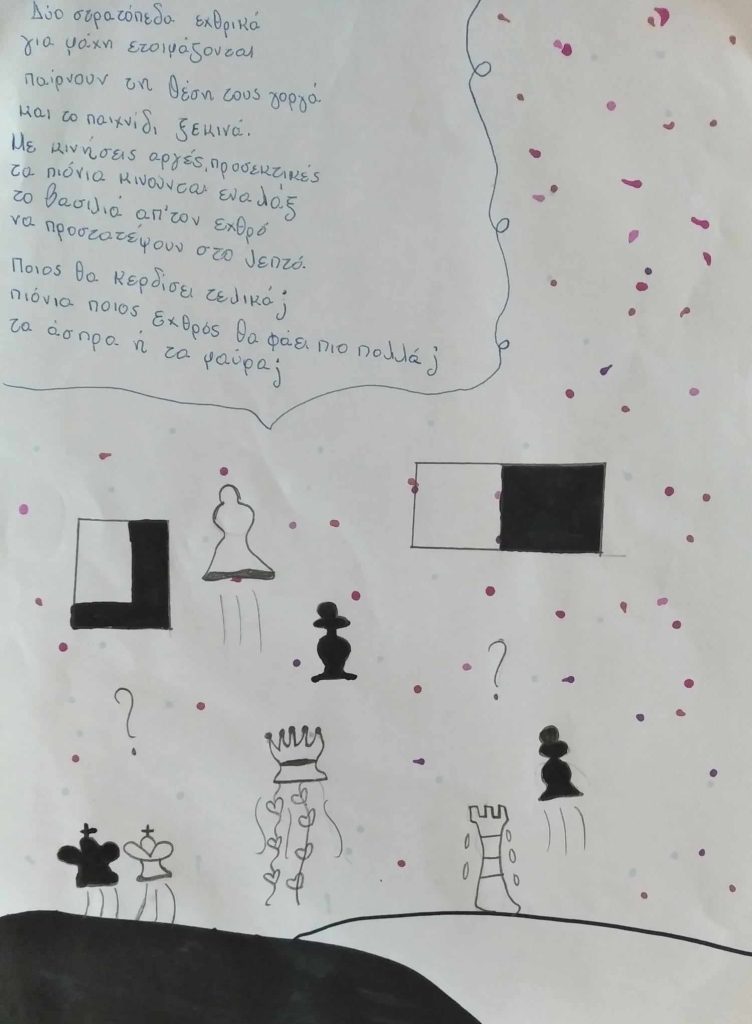 Δύο στρατόπεδα εχθρικά
για μάχη ετοιμάζονται
παίρνουν τη θέση τους γοργά
και το παιχνίδι ξεκινά.
Με κινήσεις αργές, προσεκτικές
τα πιόνια κινούνται εναλάξ
το βασιλιά απ'τον εχθρό
να προστατέψουν στο λεπτό.
Ποιος θα κερδίσει τελικά;
πιόνια ποιος εχθρός θα φάει πιο πολλά;
τα άσπρα ή τα μαύρα;
?
?